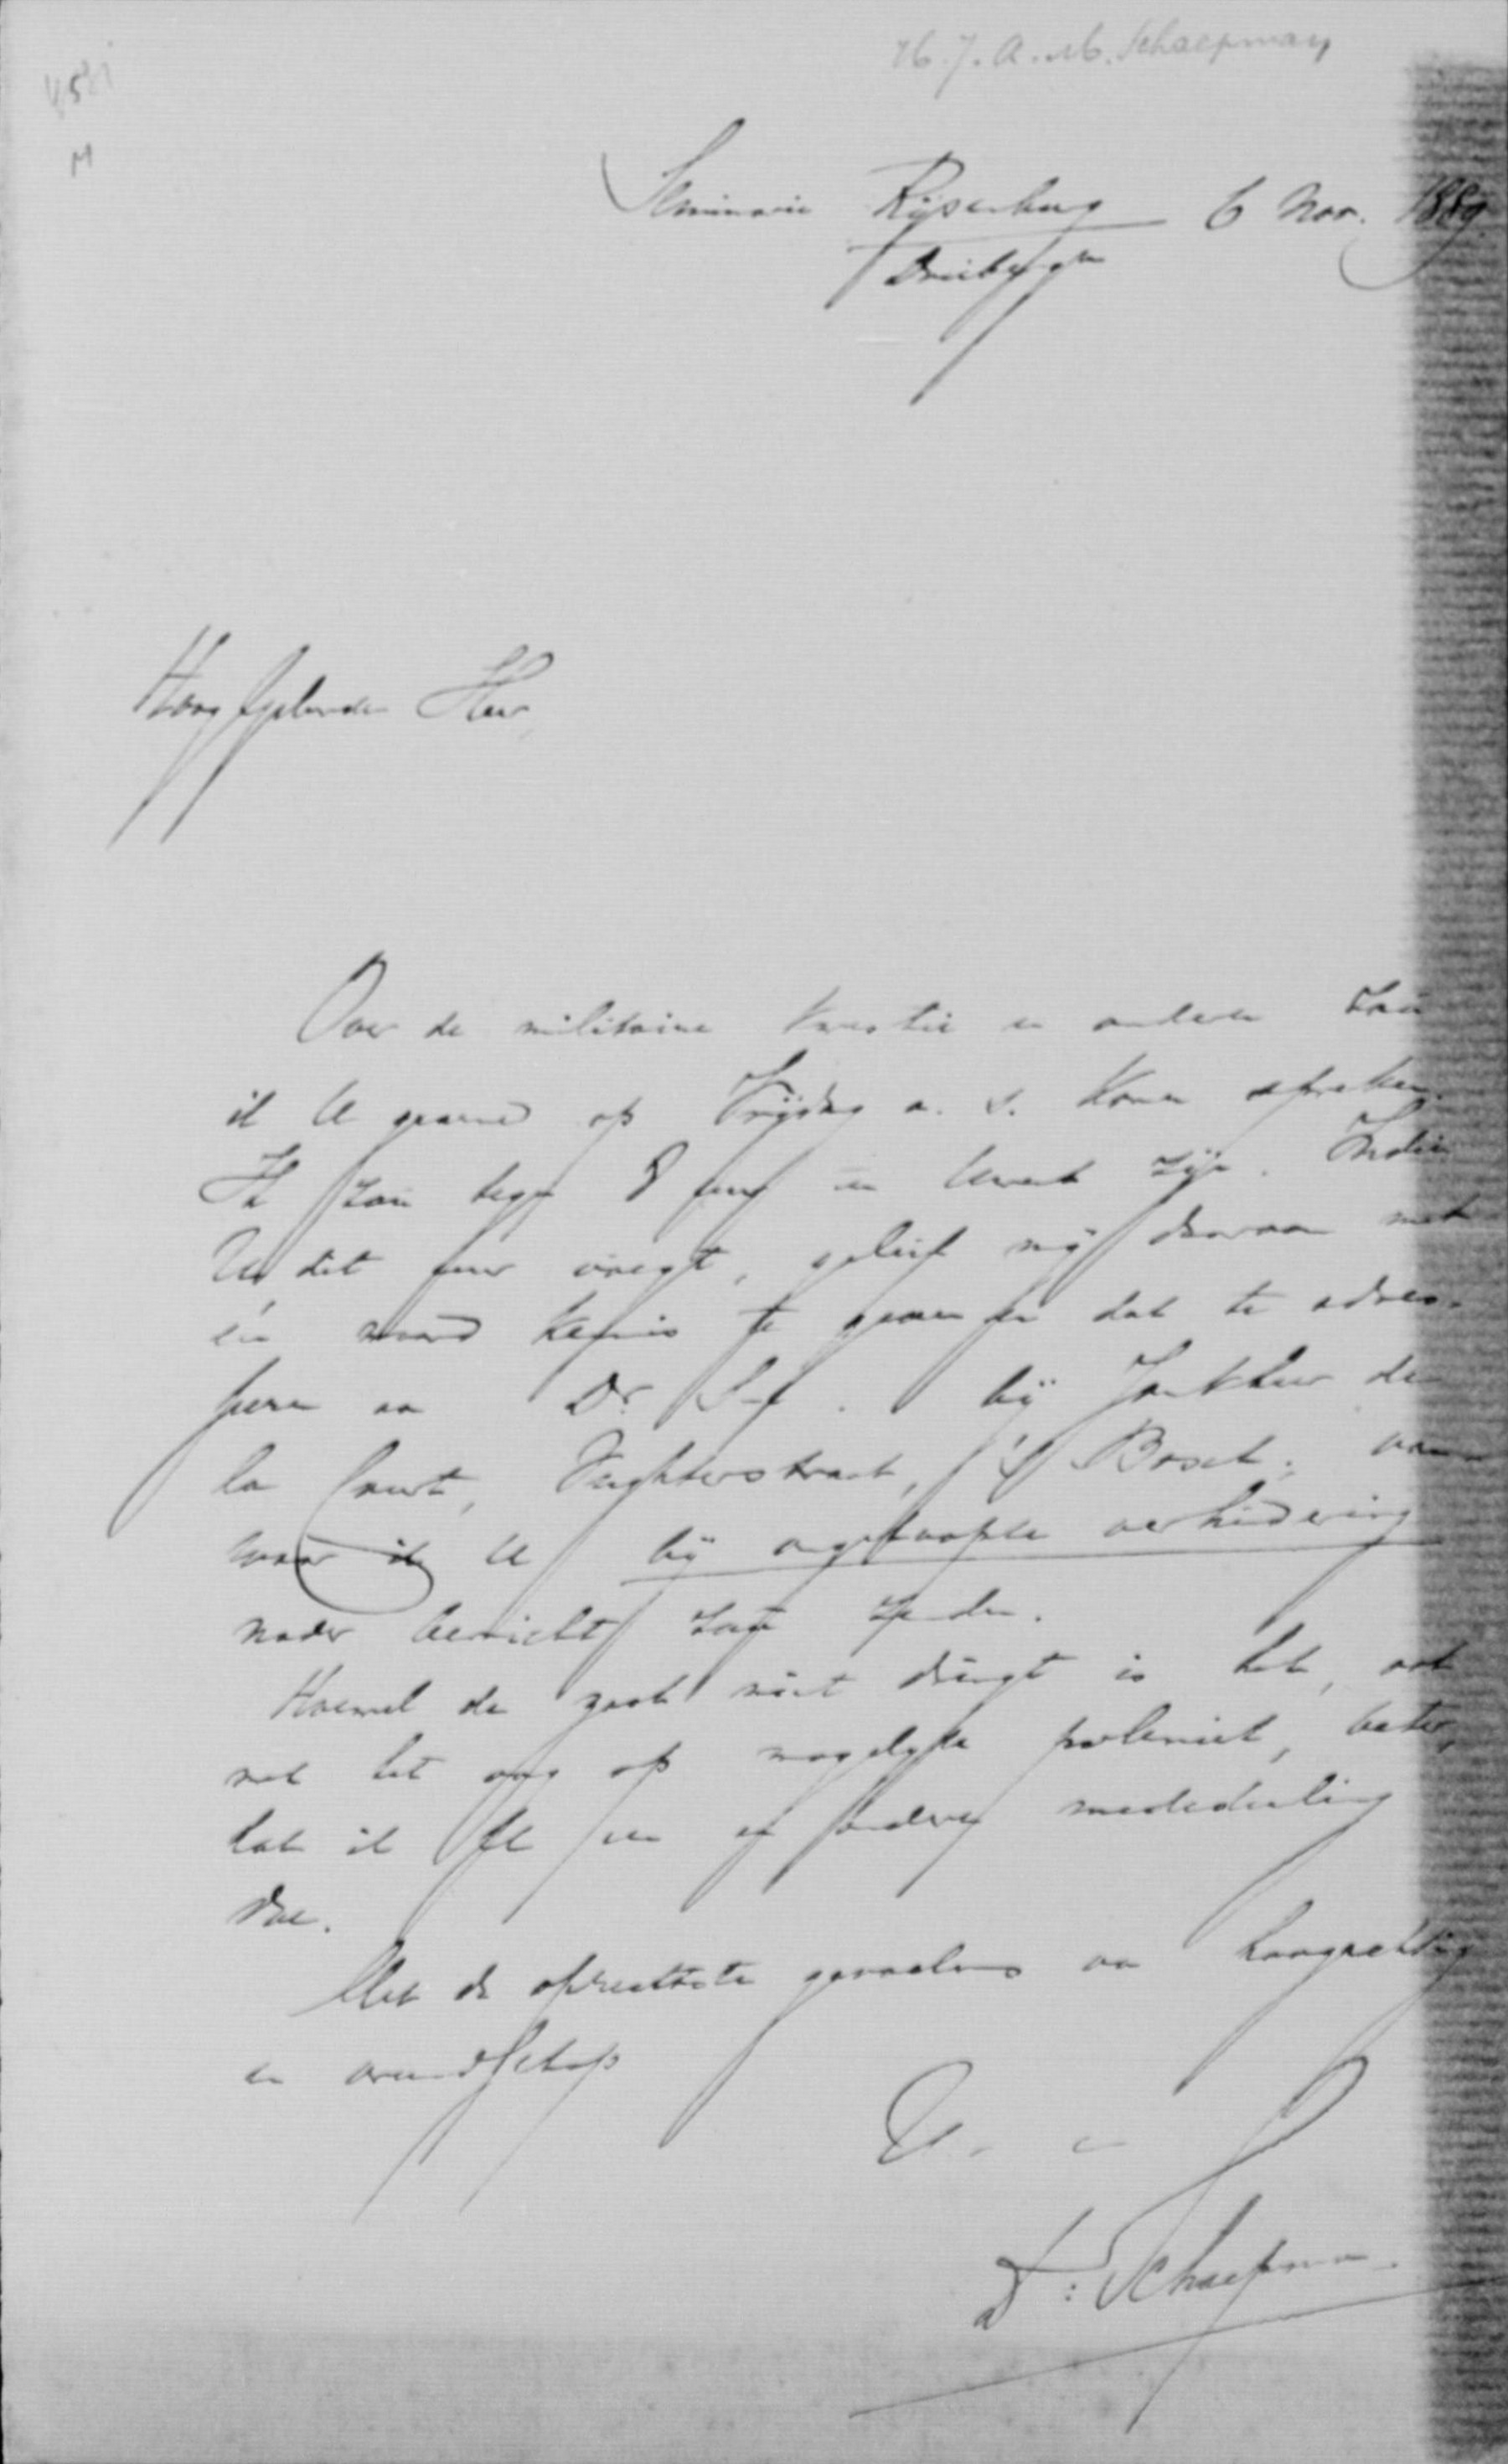 H. J. A. M. Schaepman
M
Seminarie Rijsenburg 6 Nov. 1889.
Driebergen
Hoog Heer,
Over de militaire kwestie en andere zou
ik U gaarne op Vrijdag a. s. komen spreken.
Ik zou tegen 8 uur zijn. Indien
U dit uur voegt, gelieve mij daarvan met
één woord kennis te geven en dat te adres-
seren aan Dr. S-f. bij Jonkheer de
la Court, Vughterstraat, 's Bosch; van
waar ik U bij ongehoopte verhindering
nader bericht zou zenden.
Hoewel de zaak niet dringt is het, ook
met het oog op mogelijke polemiek, beter,
dat ik U een en andere mededeeling
doe.
Met de oprechtste gevoelens van hoogachting
en vriendschap
U.
Dr: Schaepman.